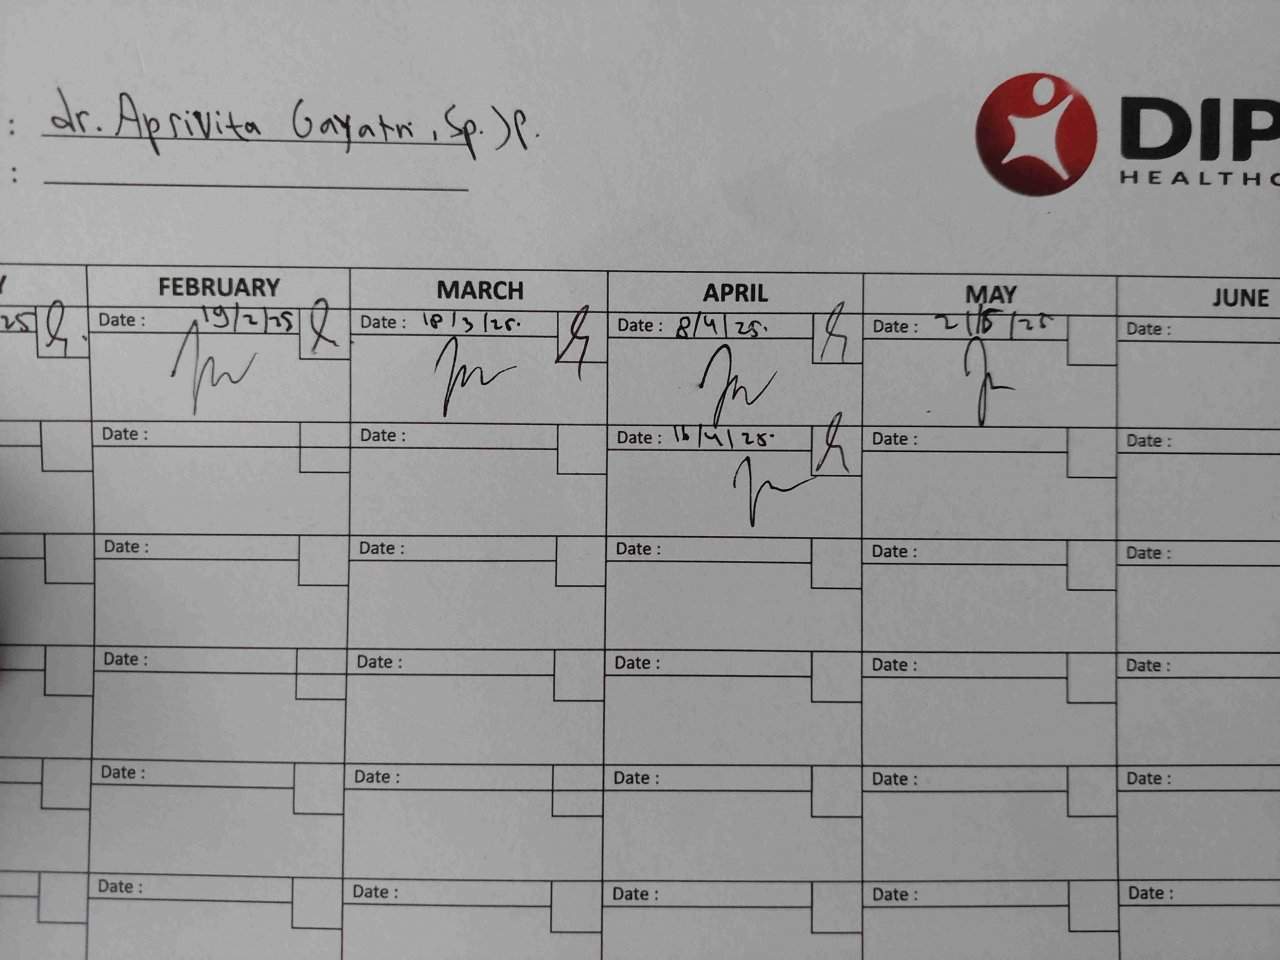 : dr. Aprivita Gayatri, Sp.JP.
:
DIP
HEALTHC
Y FEBRUARY MARCH APRIL MAY JUNE
25 Date : 19/2/25 Date : 18/3/25. Date : 8/4/25. Date : 2/5/25 Date :
Date : Date : Date : 16/4/25. Date : Date :
Date : Date : Date : Date : Date :
Date : Date : Date : Date : Date :
Date : Date : Date : Date : Date :
Date : Date : Date : Date : Date :